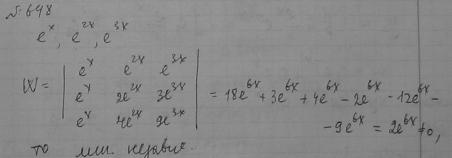 № 648
e^x, e^{2x}, e^{3x}
W = | e^x e^{2x} e^{3x} |
| e^x 2e^{2x} 3e^{3x} |
| e^x 4e^{2x} 9e^{3x} |
= 18e^{6x} + 3e^{6x} + 4e^{6x} − 2e^{6x} − 12e^{6x} −
− 9e^{6x} = 2e^{6x} ≠ 0,
то лин. независ.